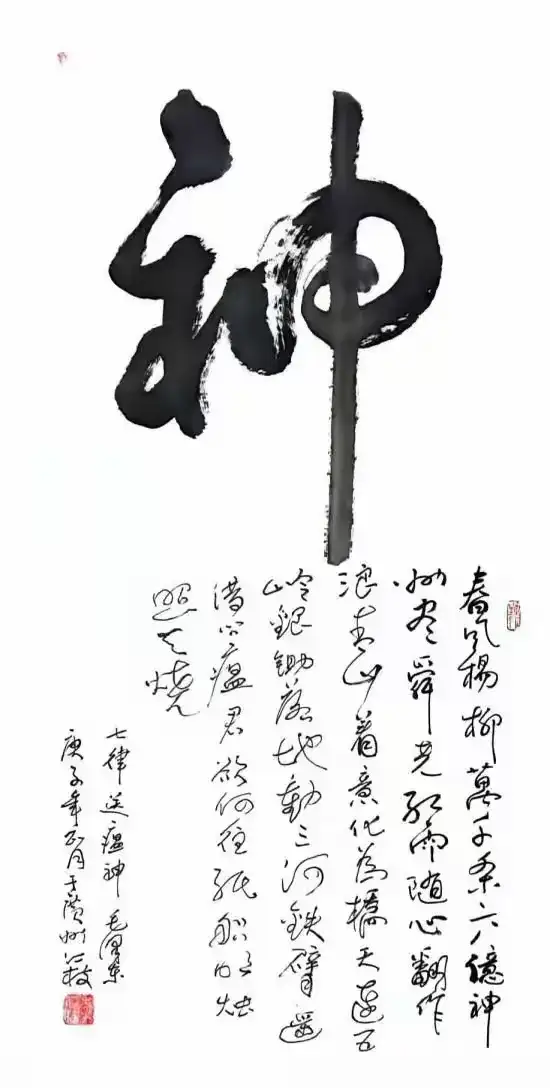 神
春风楊柳萬千条六億神
州尽舜尧红雨随心翻作
浪青山着意化為橋天连五
岭銀鋤落地動三河鉄臂遥
借问瘟君欲何往纸船明烛
照天烧
七律送瘟神 毛澤東
庚子年正月于廣州